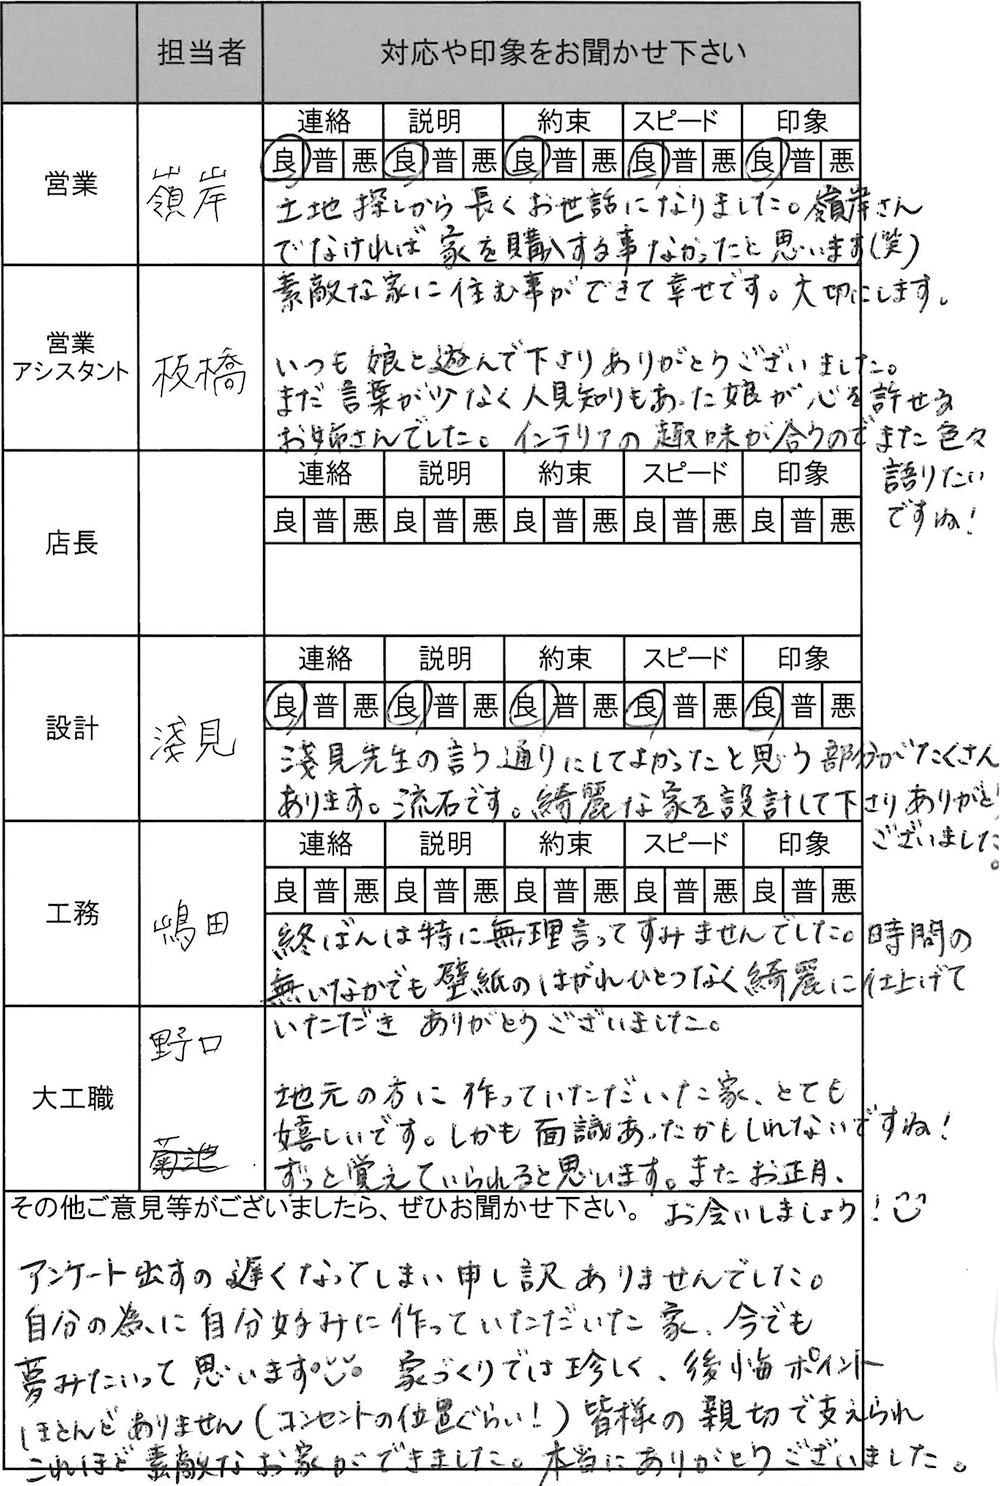 担当者 対応や印象をお聞かせ下さい
連絡 説明 約束 スピード 印象
良 普 悪 良 普 悪 良 普 悪 良 普 悪 良 普 悪
営業 嶺岸
土地探しから長くお世話になりました。嶺岸さん
でなければ家を購入する事なかったと思います(笑)
素敵な家に住む事ができて幸せです。大切にします。
営業
アシスタント 板橋
いつも娘と遊んで下さりありがとうございました。
まだ言葉が少なく人見知りもあった娘が心を許せる
お姉さんでした。インテリアの趣味が合うのでまた色々
語りたい
ですね!
連絡 説明 約束 スピード 印象
良 普 悪 良 普 悪 良 普 悪 良 普 悪 良 普 悪
店長
連絡 説明 約束 スピード 印象
良 普 悪 良 普 悪 良 普 悪 良 普 悪 良 普 悪
設計 淺見
淺見先生の言う通りにしてよかったと思う部分がたくさん
あります。流石です。綺麗な家を設計して下さりありがとう
ございました。
連絡 説明 約束 スピード 印象
良 普 悪 良 普 悪 良 普 悪 良 普 悪 良 普 悪
工務 嶋田
終ばんは特に無理言ってすみませんでした。時間の
無いなかでも壁紙のはがれひとつなく綺麗に仕上げて
いただきありがとうございました。
大工職 野口
菊池
地元の方に作っていただいた家、とても
嬉しいです。しかも面識あったかもしれないですね!
ずっと覚えていられると思います。またお正月、
お会いしましょう!
その他ご意見等がございましたら、ぜひお聞かせ下さい。
アンケート出すの遅くなってしまい申し訳ありませんでした。
自分の為に自分好みに作っていただいた家、今でも
夢みたいって思います 家づくりでは珍しく、後悔ポイント
ほとんどありません(コンセントの位置ぐらい!)皆様の親切で支えられ
これほど素敵なお家ができました。本当にありがとうございました。